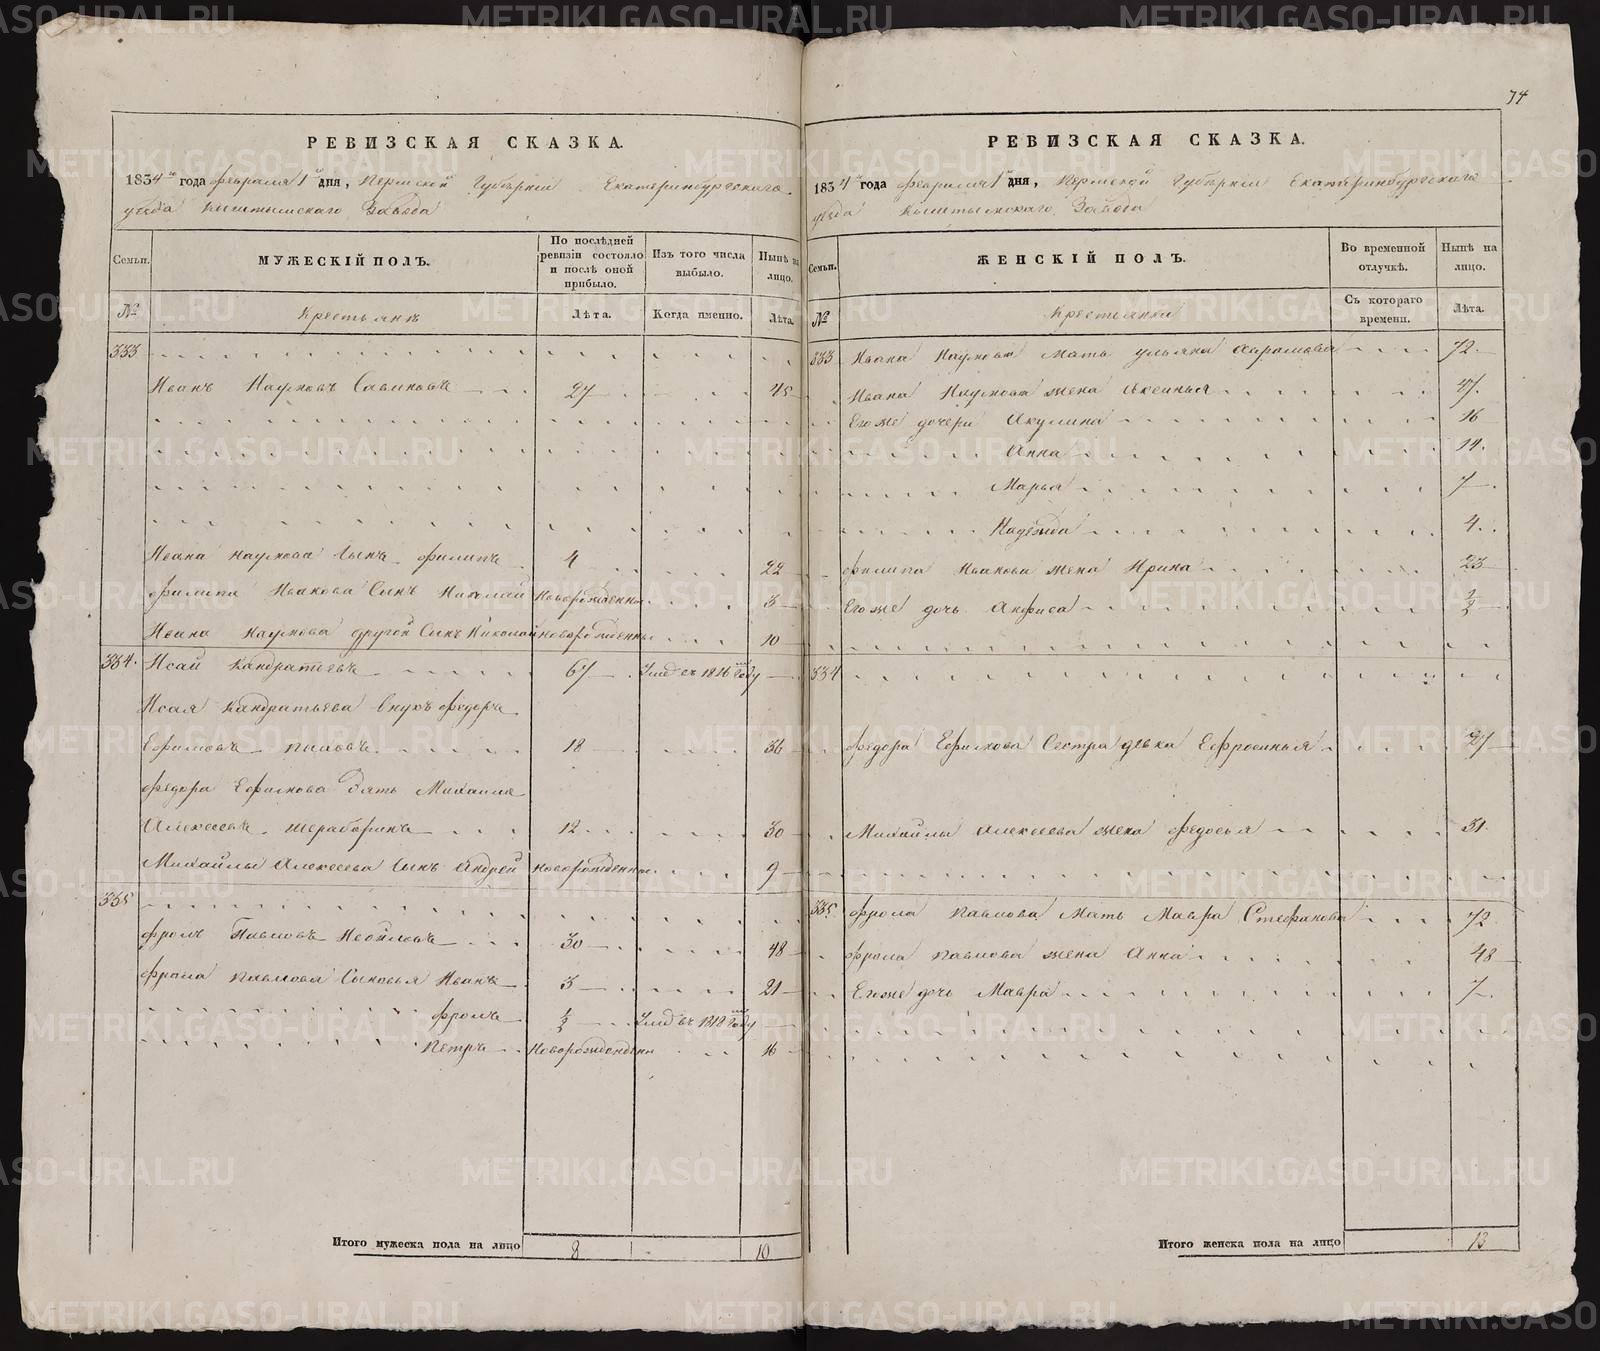 74
РЕВИЗСКАЯ СКАЗКА.
1834го года февраля 1го дня, Пермской Губерніи Екатеринбургскаго
уезда Кыштымскаго Завода
Семьи.
МУЖЕСКІЙ ПОЛЪ.
По послѣдней ревизіи состояло и послѣ оной прибыло.
Изъ того числа выбыло.
Нынѣ на лицо.
№
Крестьянъ
Лѣта.
Когда именно.
Лѣта.
333
Иванъ Наумовъ Савиновъ 27 45
Ивана Наумова Сынъ Филипъ 4 22
Филипа Иванова Сынъ Николай Новорожденны 3
Ивана Наумова другой Сынъ Николай новорожденны 10
334. Исай Кандратьевъ 67 Умд въ 1816м Году
Исая Кандратьева Внукъ Федоръ
Ефимовъ 18 36
Федора Ефимова Зять Михаила
Алексеевъ 12 30
Михайлы Алексеева Сынъ Андрей новорожденны 9
335
Фролъ Павловъ 30 48
Фрола Павлова Сыновья Иванъ 3 21
Фролъ 1/2 Умд въ 1818м Году
Петръ Новорожденны 16
Итого мужеска пола на лицо 8 10
РЕВИЗСКАЯ СКАЗКА.
1834го года февраля 1го дня, Пермской Губерніи Екатеринбургскаго
уезда Кыштымскаго Завода
Семьи.
ЖЕНСКІЙ ПОЛЪ.
Во временной отлучкѣ.
Нынѣ на лицо.
№
Крестьянки
Съ котораго времени.
Лѣта.
333 Ивана Наумова Мать Ульяна Абрамова 72
Ивана Наумова жена Аксинья 47
Егоже дочери Акулина 16
Анна 14
Марья 7
Надежда 4
Филипа Иванова жена Ирина 23
Егоже дочь Анфиса 1/2
334
Федора Ефимова Сестра девка Ефросинья 27
Михайлы Алексеева жена Федосья 31
335 Фрола Павлова Мать Мавра Стефанова 72
Фрола Павлова жена Анна 48
Егоже дочь Мавра 7
Итого женска пола на лицо 13
METRIKI.GASO-URAL.RU